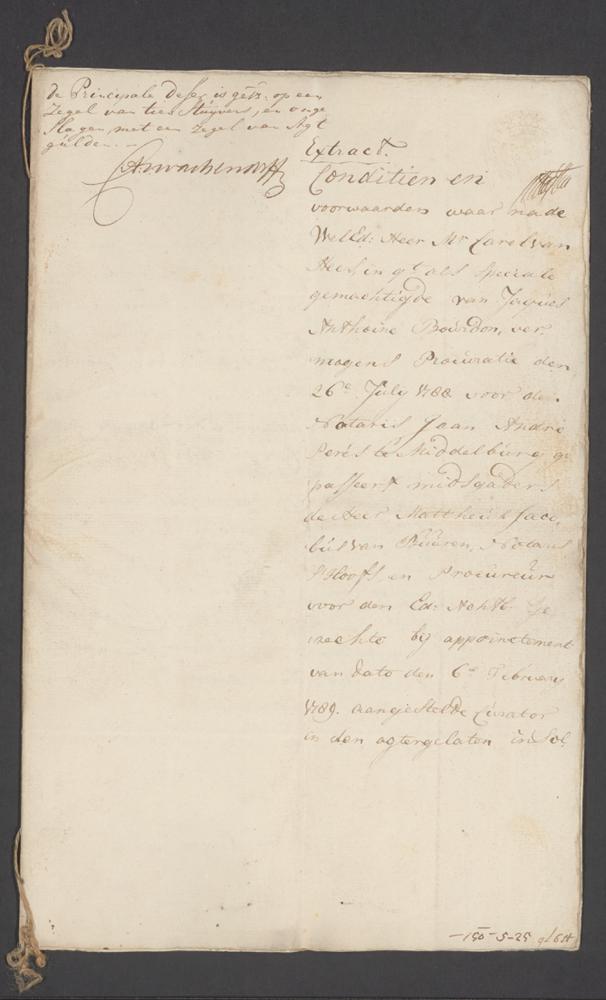 de Principale deser is gesz. op een
Zegel van tien Stuyvers, en onge
slagen, met een zegel van Agt
gulden. —
Extract.
Conditien en
voorwaarden waar na de
WelEd: Heer Mr. Carel van
Hees in qt. als speciale
gemachtigde van Jaques
Anthoine Bourdon, ver
mogens Procuratie den
26e. July 1788 voor den
Notaris Jaan André
Perès te Middelburg ge
passeert midsgaders
de Heer Mattheus Jaco,
bus van Buuren, Notaris
's Hoofs, en Procureur
voor den Ed: Achtb: Ge
rechte bij appoinctement
van dato den 6e. February
1789. aangestelde Curator
in den agtergelaten insol,
—150-5-25